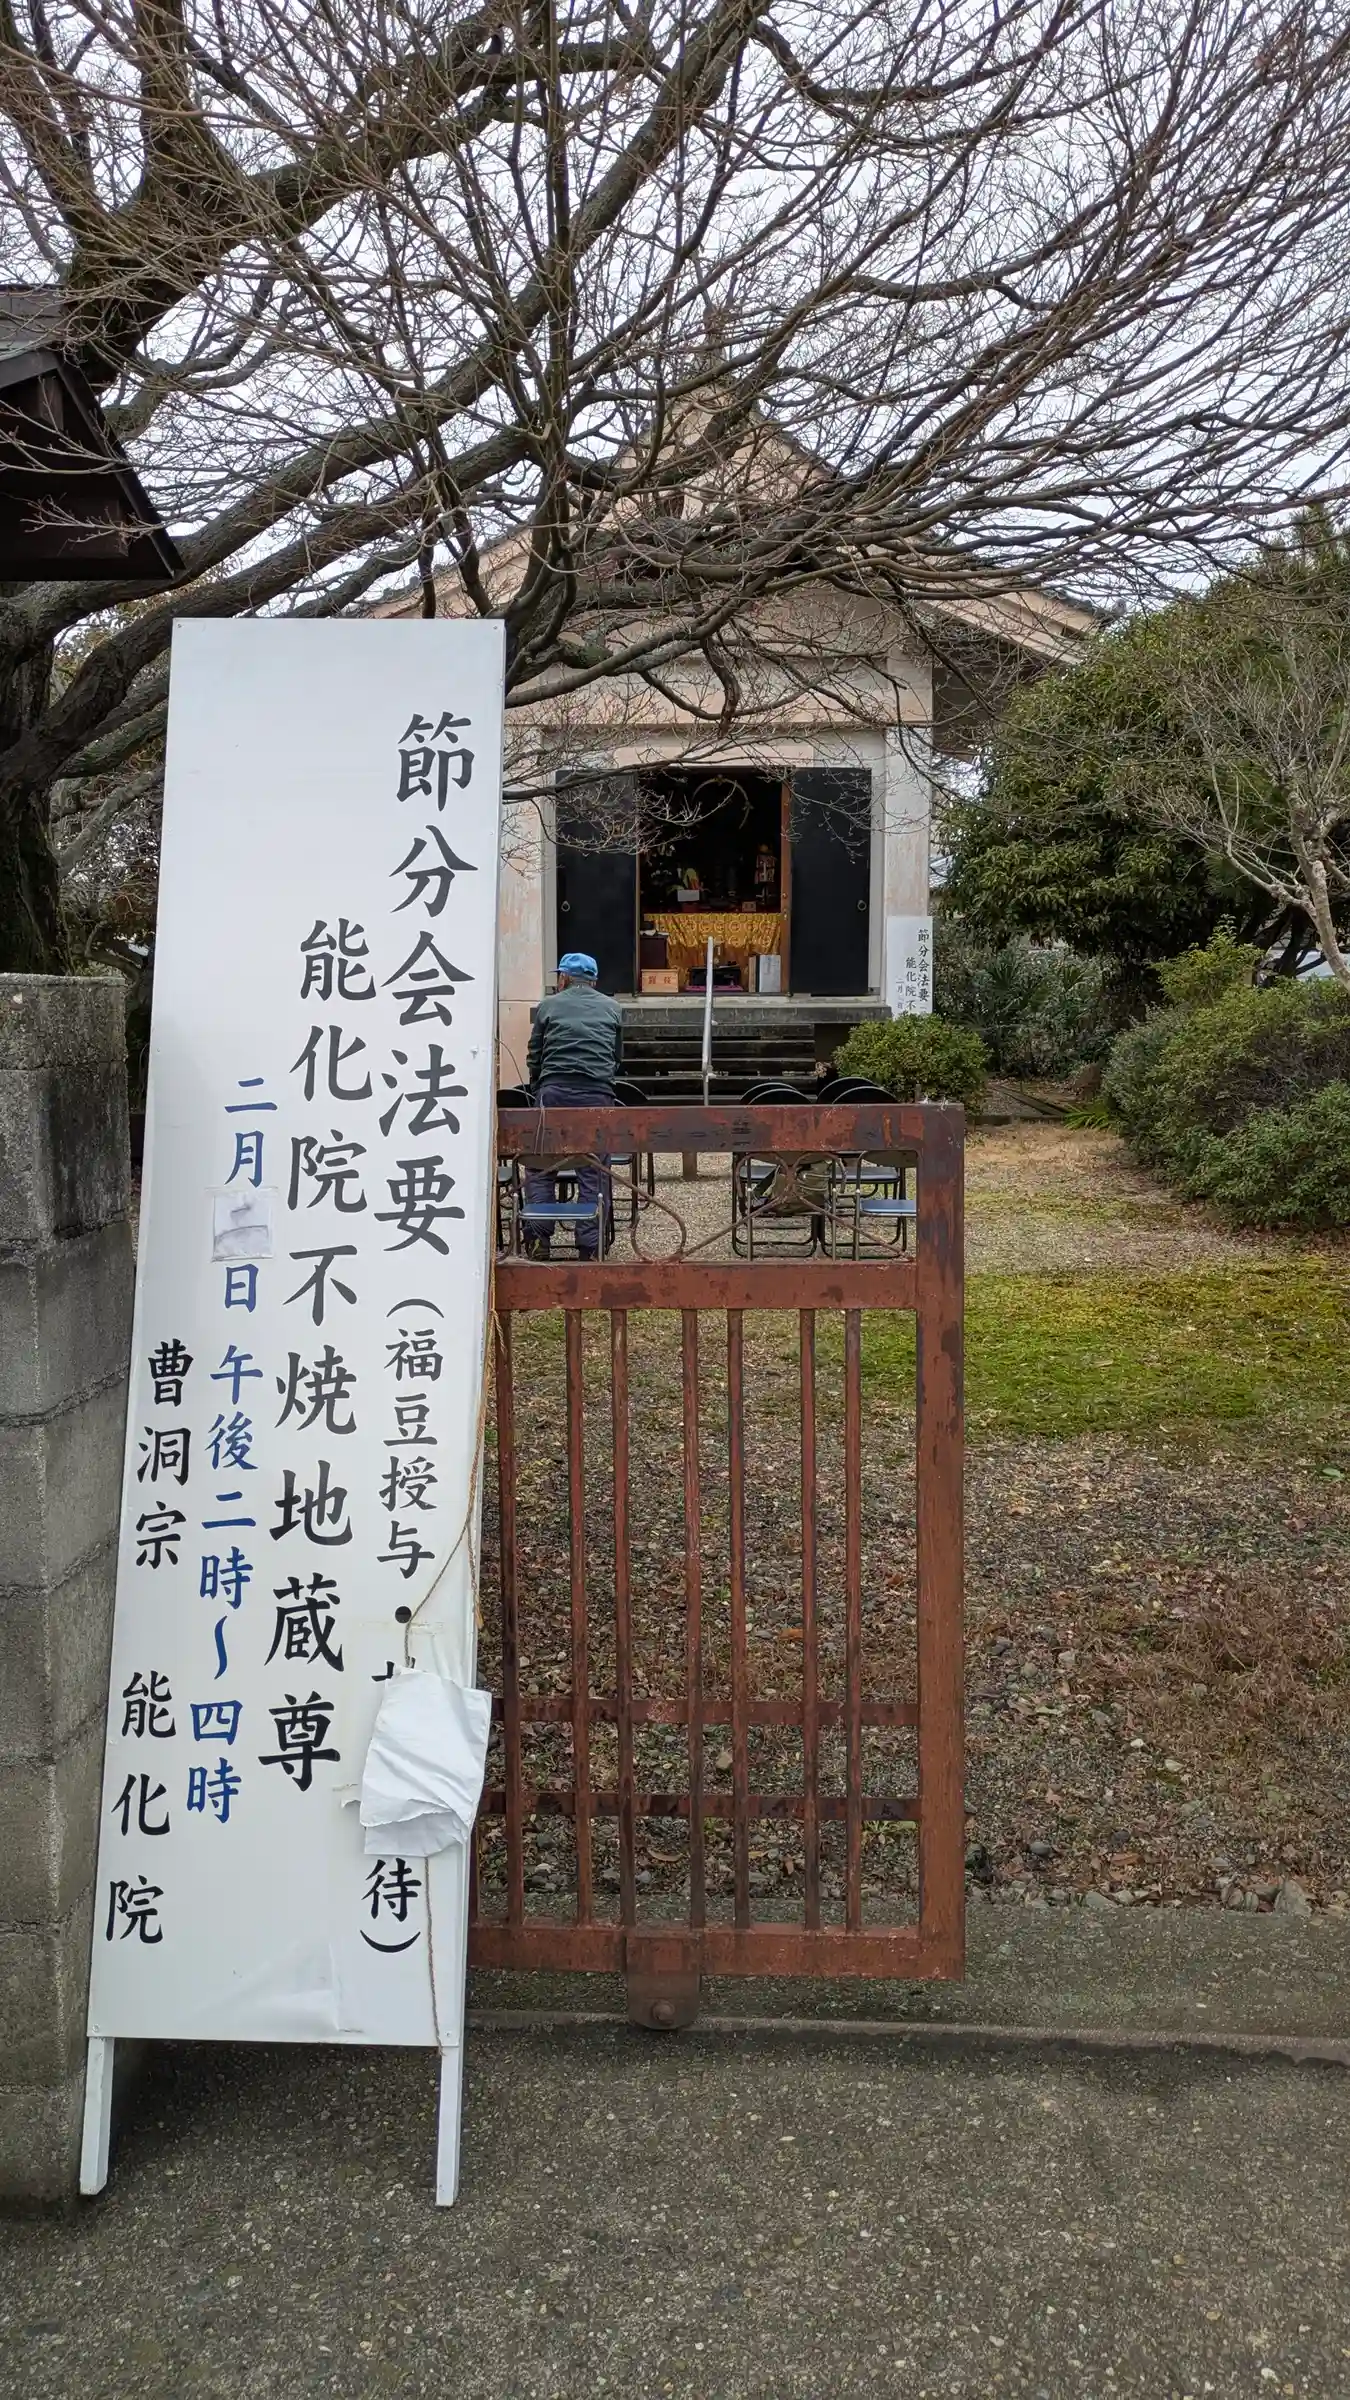 節分会法要（福豆授与・
待）
能化院不焼地蔵尊
二月二日 午後二時～四時
曹洞宗 能化院
節分会法要
能化院不
二月